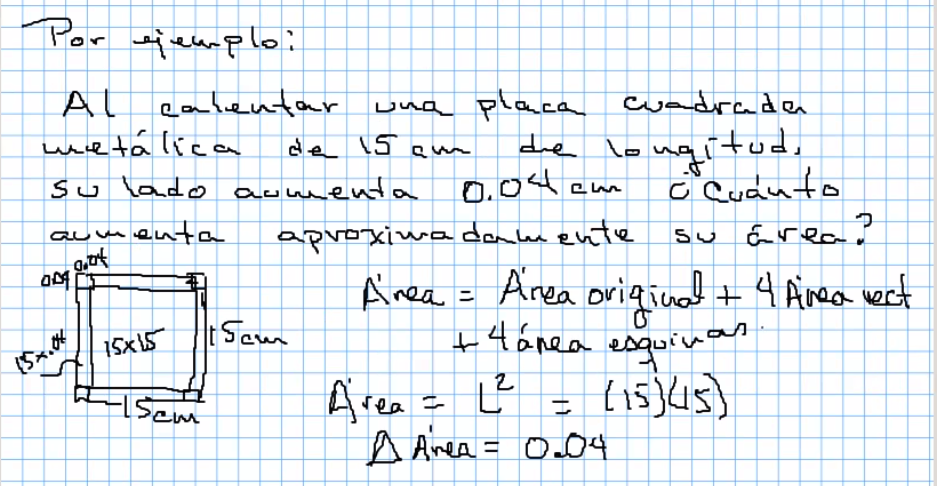 Por ejemplo:
Al calentar una placa cuadrada
metálica de 15 cm de longitud,
su lado aumenta 0.04 cm ¿Cuánto
aumenta aproximadamente su área?
0.04
0.04
Área = Área original + 4 Área rect
+ 4 área esquinas.
15x.04
15x15
15cm
15cm
Área = L² = (15)(15)
Δ Área = 0.04